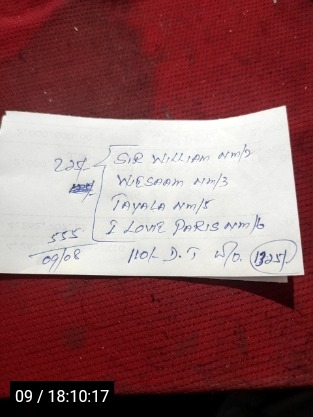 225/- SIR WILLIAM NM/2
WESAAM NM/3
TAYALA NM/5
I LOVE PARIS NM/6
555
09/08 110/- D.T W/O. 1325/-
09 / 18:10:17